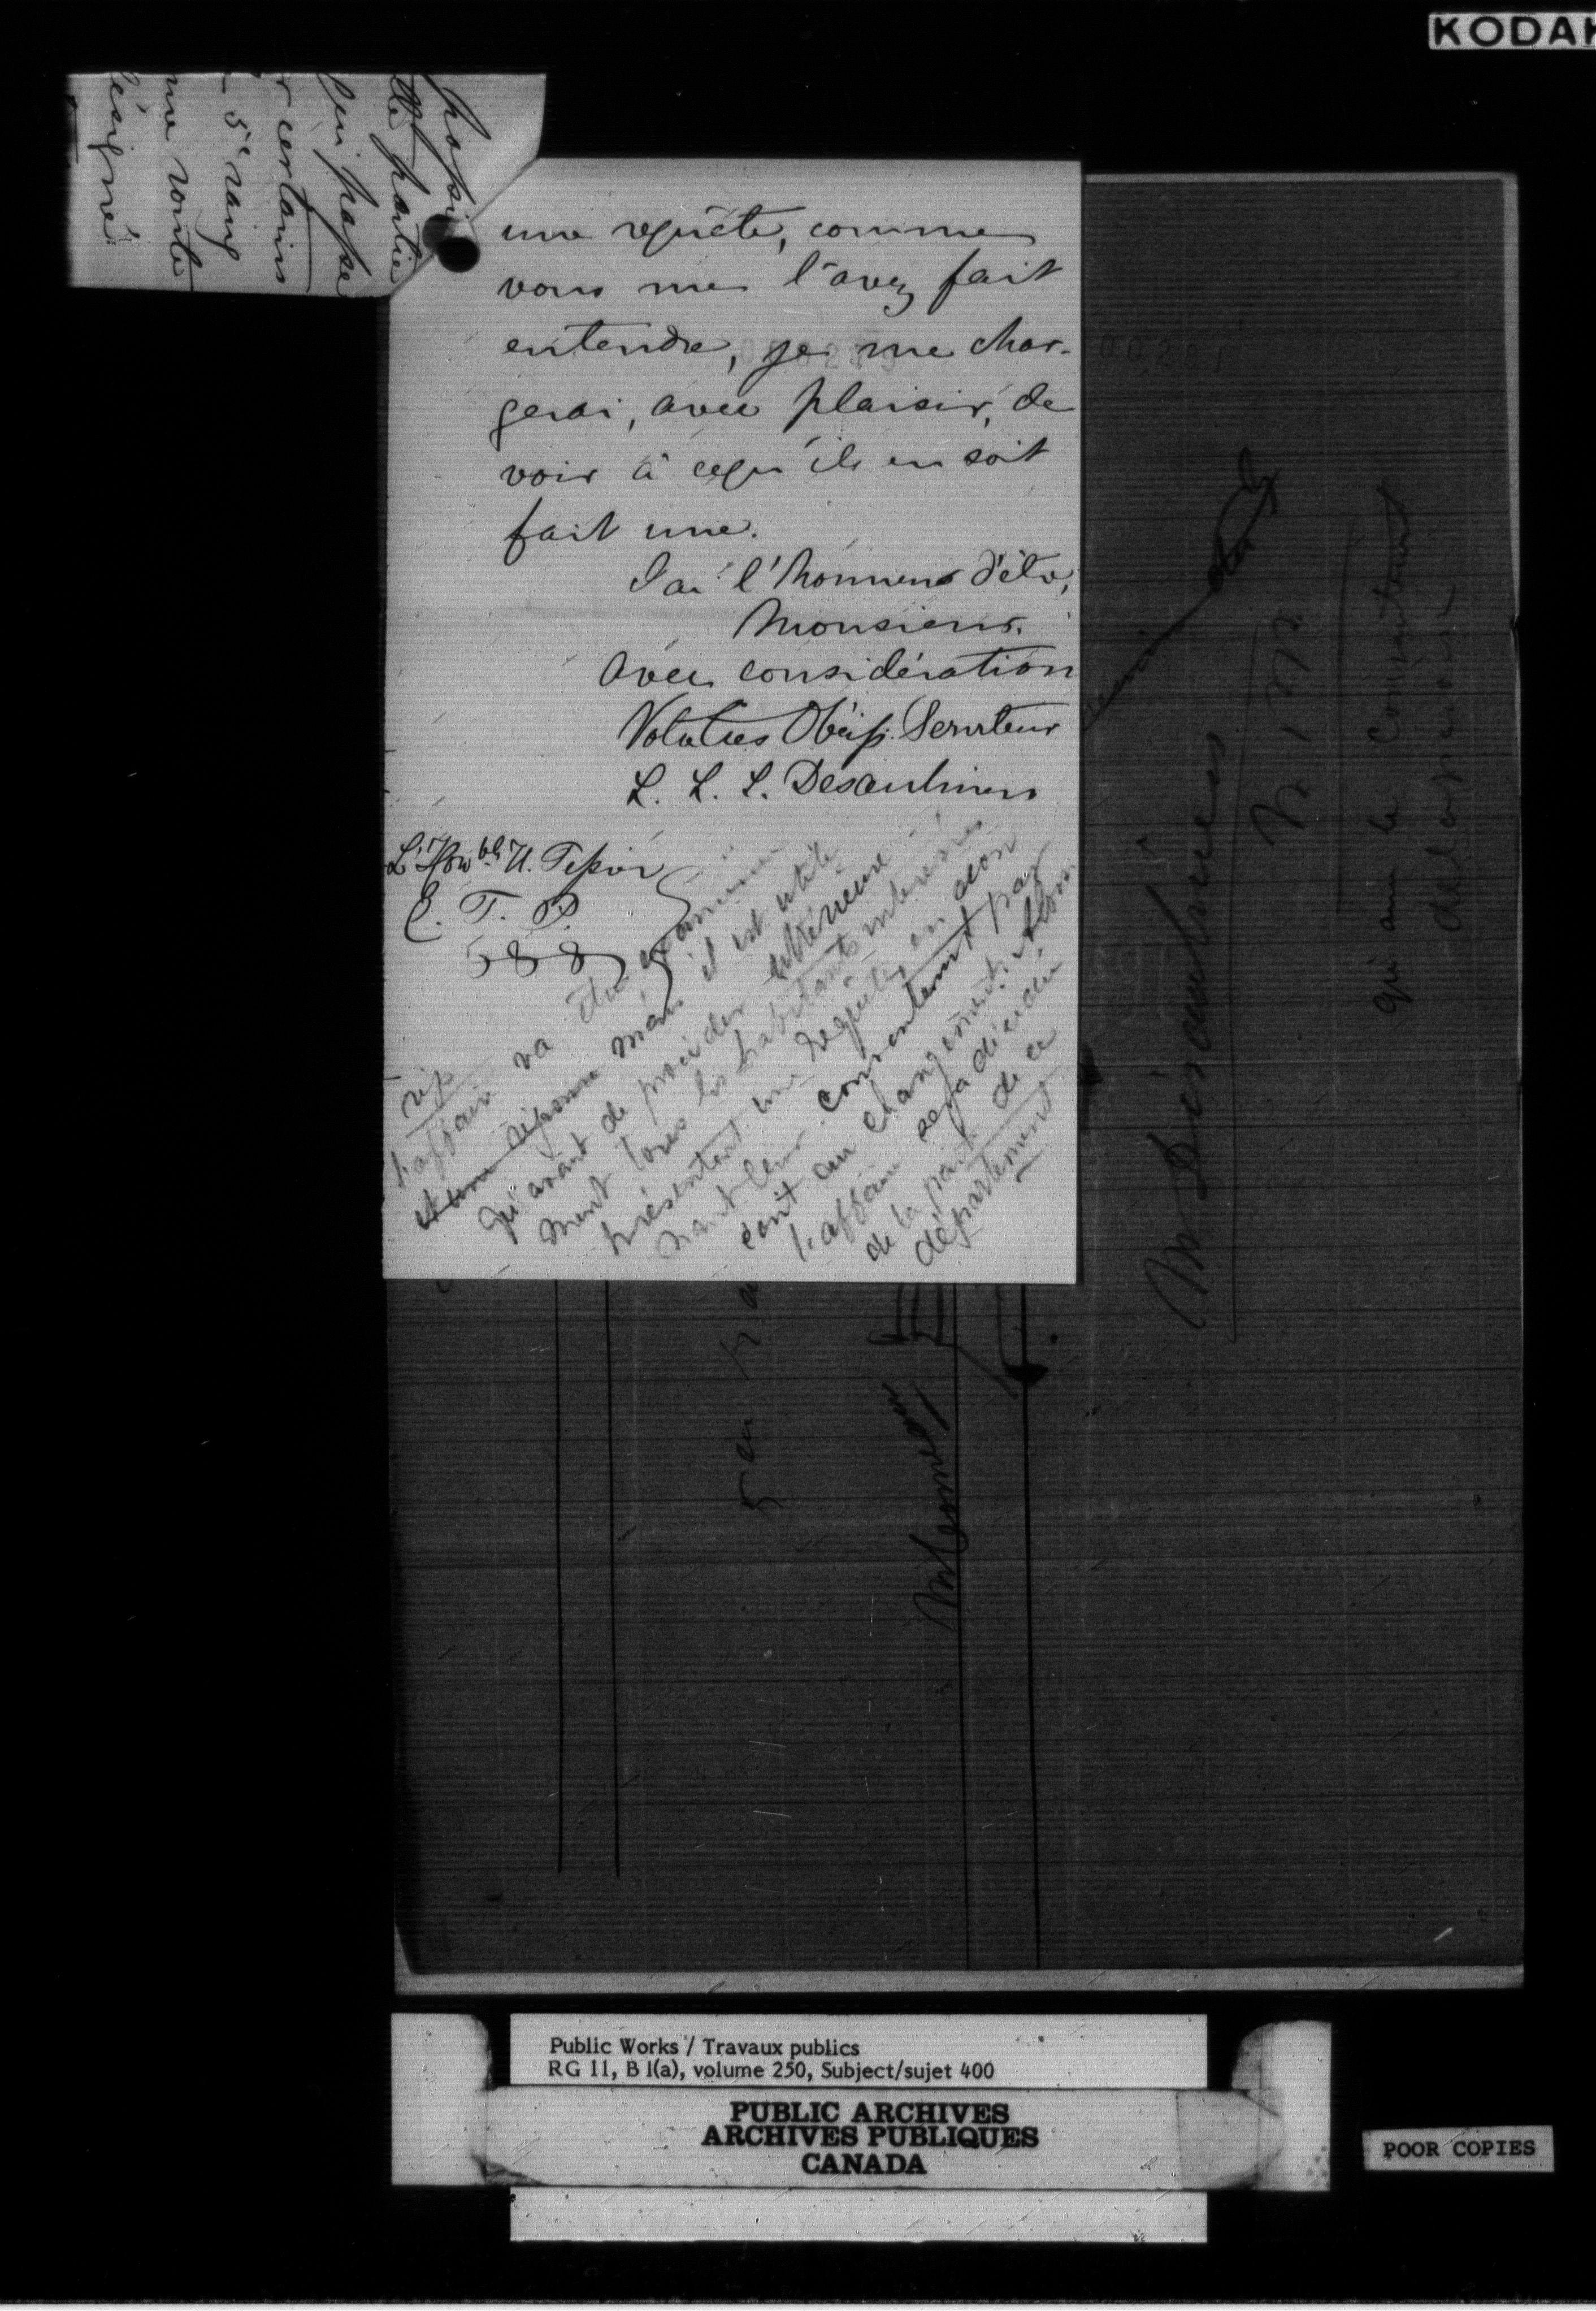 KODAK
passe
de partie
qui passe
r certains
5e rang
une route
désigné
une requête, comme
vous me l'avez fait
entendre, je me char-
gerai, avec plaisir, de
voir à cequ'ils en soit
fait une.
J'ai l'honneur d'être,
Monsieur.
avec considération
Votre très Obéis. Serviteur
L. L. L. Desaulniers
L'Honble U. Tessier
C. T. P.
588
rép
L'affaire va être examinée
et une réponse mais il est utile
qu'avant de procéder ultérieure
ment tous les habitants intéressés
présentent une requête en don
nant leur consentement par
écrit au changement. Alors
l'affaire sera décidée
de la part de ce
département
Mr Désaulniers
qui aura le consentement
5 en
Public Works / Travaux publics
RG 11, B 1(a), volume 250, Subject/sujet 400
PUBLIC ARCHIVES
ARCHIVES PUBLIQUES
CANADA
POOR COPIES